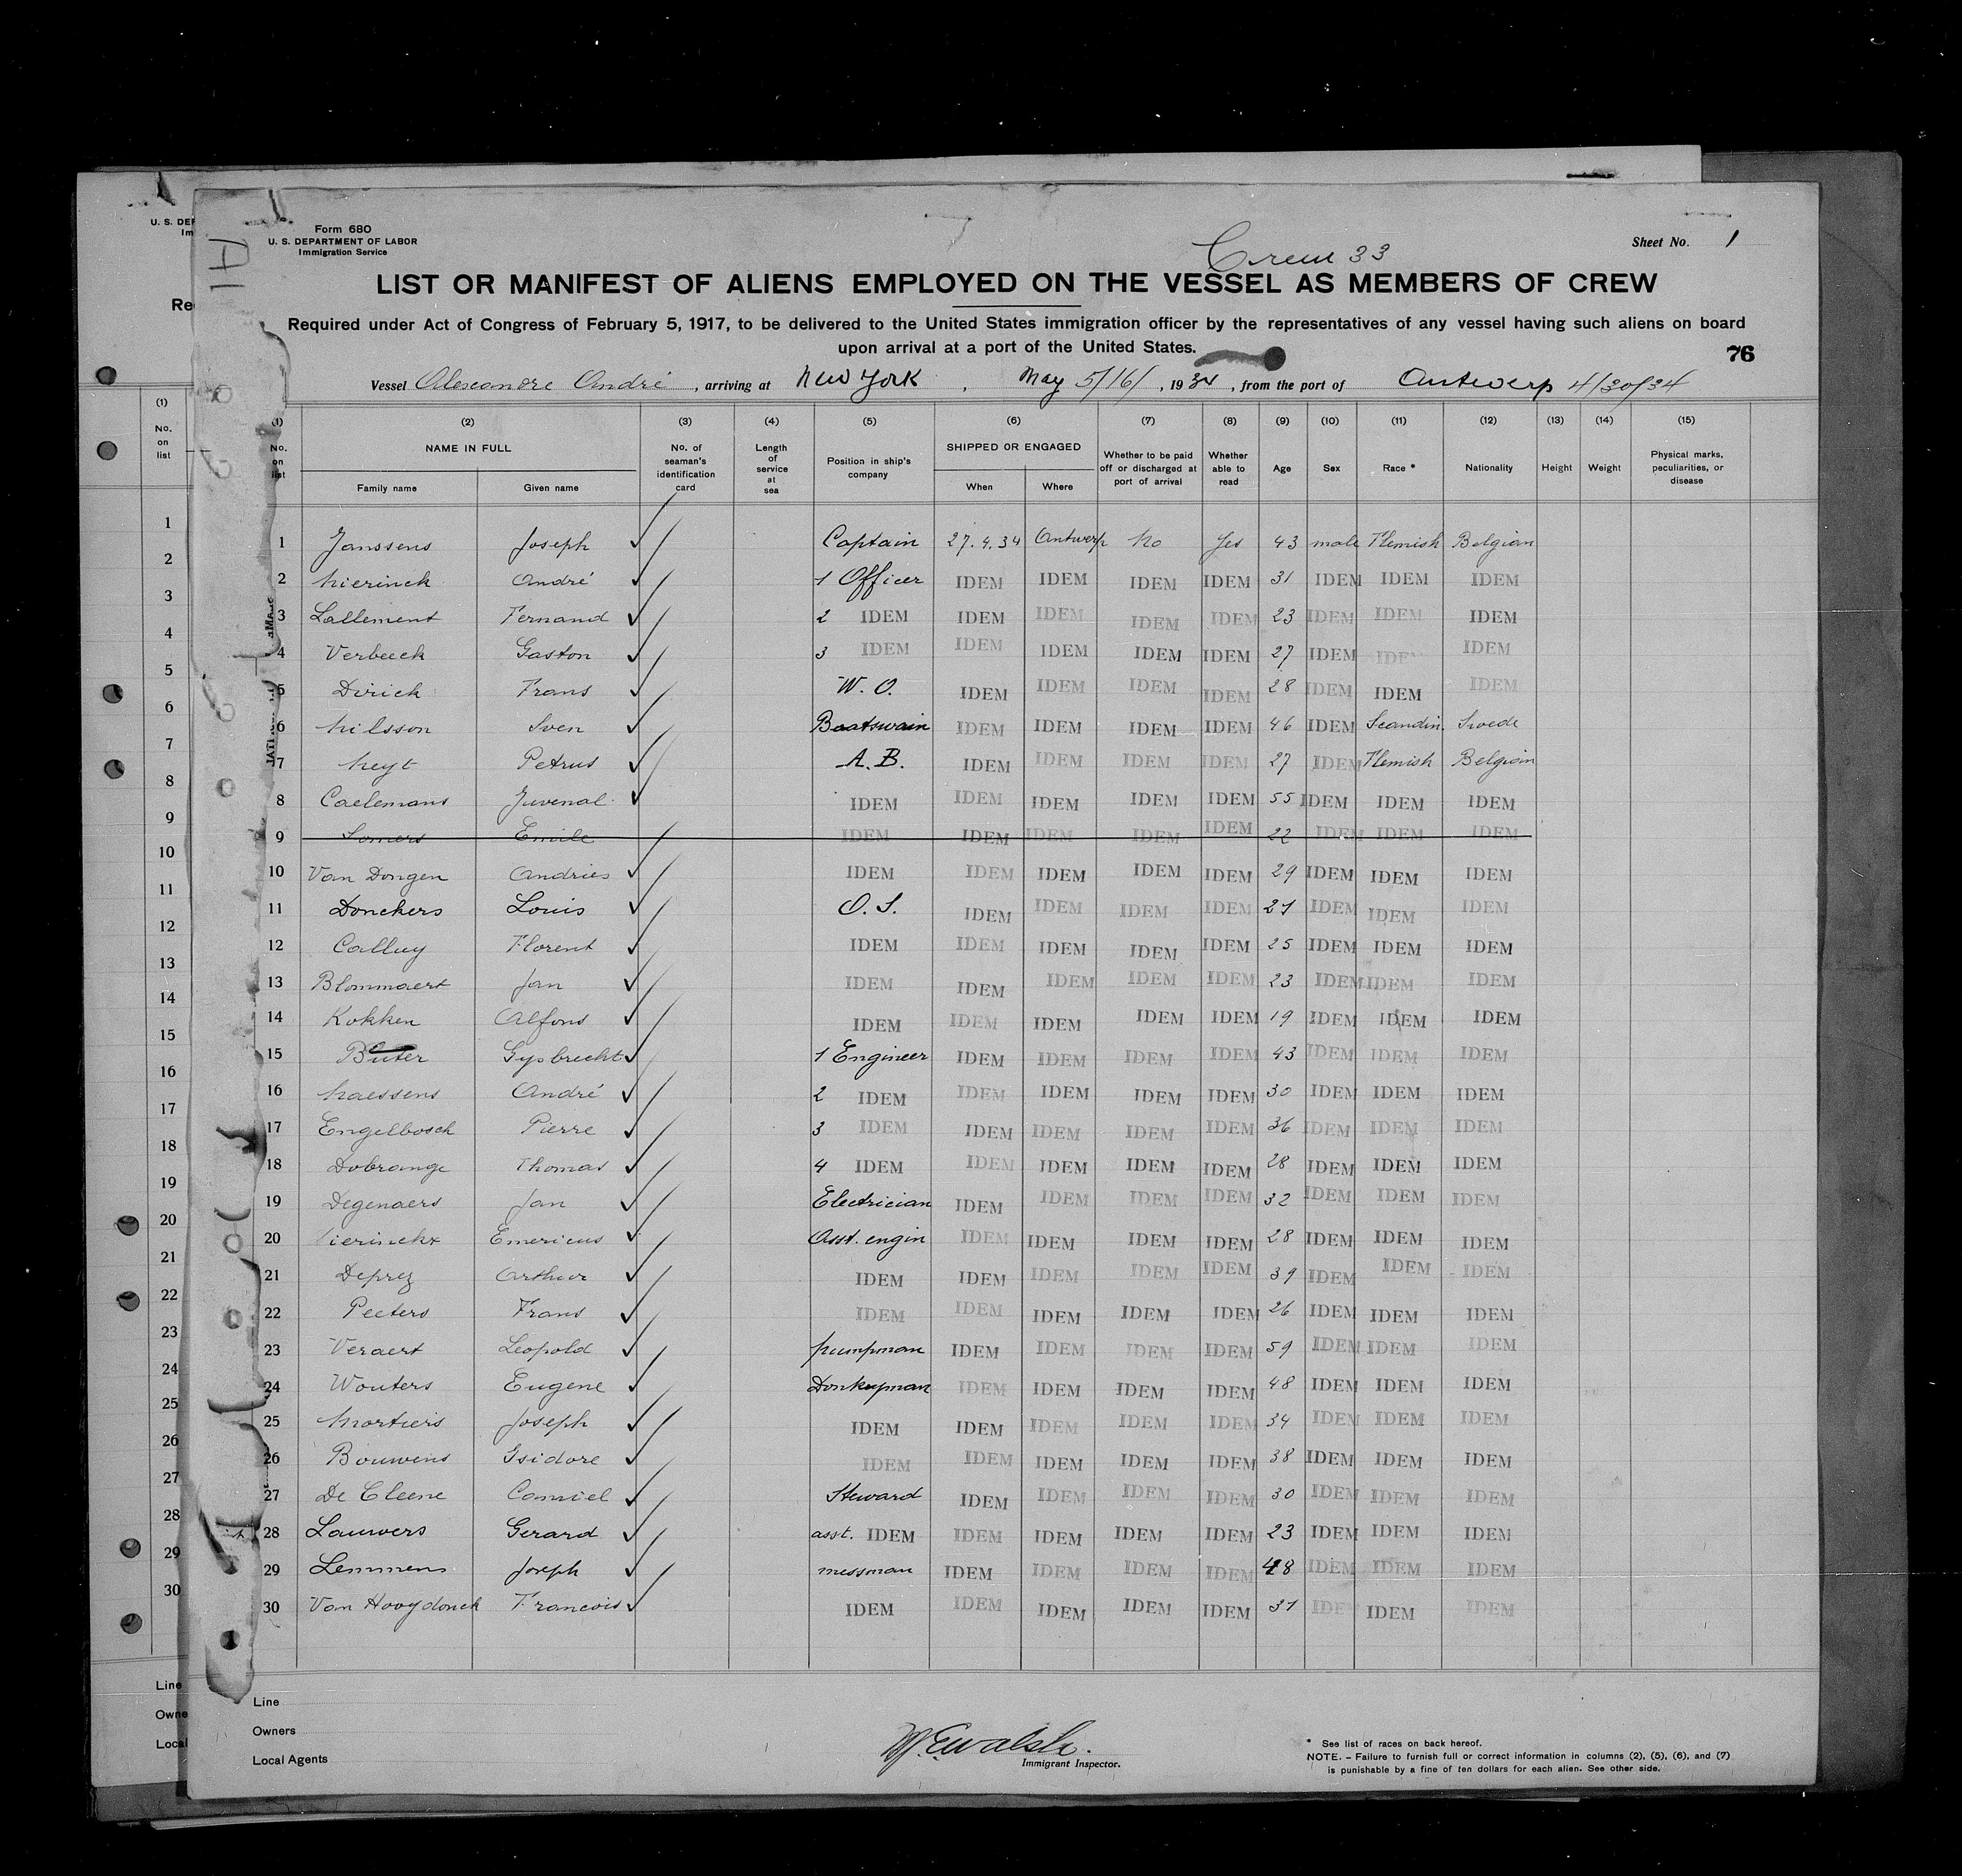 Form 680
U. S. DEPARTMENT OF LABOR
Immigration Service
Crew 33
Sheet No. 1
LIST OR MANIFEST OF ALIENS EMPLOYED ON THE VESSEL AS MEMBERS OF CREW
Required under Act of Congress of February 5, 1917, to be delivered to the United States immigration officer by the representatives of any vessel having such aliens on board
upon arrival at a port of the United States.
76
Vessel Alexandre André, arriving at New York, May 5/16/, 1934, from the port of Antwerp 4/30/34
(1) (2) (3) (4) (5) (6) (7) (8) (9) (10) (11) (12) (13) (14) (15)
No. on list NAME IN FULL Family name Given name No. of seaman's identification card Length of service at sea Position in ship's company SHIPPED OR ENGAGED When Where Whether to be paid off or discharged at port of arrival Whether able to read Age Sex Race * Nationality Height Weight Physical marks, peculiarities, or disease
1 Janssens Joseph Captain 27.4.34 Antwerp No Yes 43 male Flemish Belgian
2 Nierinck André 1 Officer IDEM IDEM IDEM IDEM 31 IDEM IDEM IDEM
3 Lallement Fernand 2 IDEM IDEM IDEM IDEM IDEM 23 IDEM IDEM IDEM
4 Verbeeck Gaston 3 IDEM IDEM IDEM IDEM IDEM 27 IDEM IDEM IDEM
5 Dirick Frans W. O. IDEM IDEM IDEM IDEM 28 IDEM IDEM IDEM
6 Nilsson Sven Boatswain IDEM IDEM IDEM IDEM 46 IDEM Scandin. Swede
7 Neyt Petrus A. B. IDEM IDEM IDEM IDEM 27 IDEM Flemish Belgian
8 Caelemans Juvenal IDEM IDEM IDEM IDEM IDEM 55 IDEM IDEM IDEM
9 Somers Emile IDEM IDEM IDEM IDEM IDEM 22 IDEM IDEM IDEM
10 Van Dongen Andries IDEM IDEM IDEM IDEM IDEM 29 IDEM IDEM IDEM
11 Donckers Louis O. S. IDEM IDEM IDEM IDEM 21 IDEM IDEM IDEM
12 Calluy Florent IDEM IDEM IDEM IDEM IDEM 25 IDEM IDEM IDEM
13 Blommaert Jan IDEM IDEM IDEM IDEM IDEM 23 IDEM IDEM IDEM
14 Kokken Alfons IDEM IDEM IDEM IDEM IDEM 19 IDEM IDEM IDEM
15 Buter Gysbrecht 1 Engineer IDEM IDEM IDEM IDEM 43 IDEM IDEM IDEM
16 Naessens André 2 IDEM IDEM IDEM IDEM IDEM 30 IDEM IDEM IDEM
17 Engelbosch Pierre 3 IDEM IDEM IDEM IDEM IDEM 36 IDEM IDEM IDEM
18 Dobrange Thomas 4 IDEM IDEM IDEM IDEM IDEM 28 IDEM IDEM IDEM
19 Degenaers Jan Electrician IDEM IDEM IDEM IDEM 32 IDEM IDEM IDEM
20 Emericus Asst. engin IDEM IDEM IDEM IDEM 28 IDEM IDEM IDEM
21 Deprez Arthur IDEM IDEM IDEM IDEM IDEM 39 IDEM IDEM IDEM
22 Peeters Frans IDEM IDEM IDEM IDEM IDEM 26 IDEM IDEM IDEM
23 Veraert Leopold pumpman IDEM IDEM IDEM IDEM 59 IDEM IDEM IDEM
24 Wouters Eugene Donkeyman IDEM IDEM IDEM IDEM 48 IDEM IDEM IDEM
25 Mortiers Joseph IDEM IDEM IDEM IDEM IDEM 34 IDEM IDEM IDEM
26 Bouwens Isidore IDEM IDEM IDEM IDEM IDEM 38 IDEM IDEM IDEM
27 De Cleene Camiel Steward IDEM IDEM IDEM IDEM 30 IDEM IDEM IDEM
28 Lauwers Gerard asst. IDEM IDEM IDEM IDEM IDEM 23 IDEM IDEM IDEM
29 Lemmens Joseph messman IDEM IDEM IDEM IDEM 48 IDEM IDEM IDEM
30 Van Hooydonck Francois IDEM IDEM IDEM IDEM IDEM 31 IDEM IDEM IDEM
Line
Owners
Local Agents
Immigrant Inspector.
* See list of races on back hereof.
NOTE. – Failure to furnish full or correct information in columns (2), (5), (6), and (7)
is punishable by a fine of ten dollars for each alien. See other side.